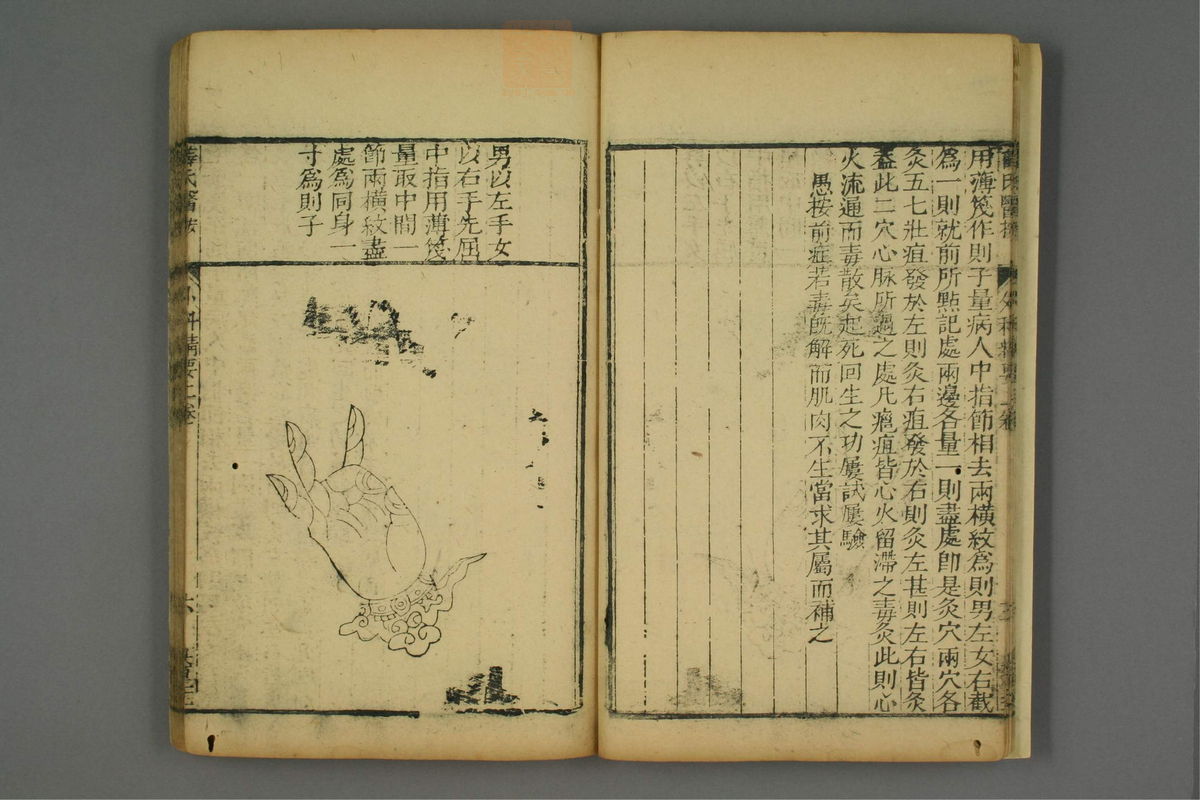 用薄篾作則子量病人中指節相去兩橫紋爲則男左女右截
爲一則就前所點記處兩邊各量一則盡處卽是灸穴兩穴各
灸五七壯疽發於左則灸右疽發於右則灸左甚則左右皆灸
蓋此二穴心脉所過之處凡癰疽皆心火留滯之毒灸此則心
火流通而毒散矣起死回生之功屢試屢驗
愚按前症若毒旣解而肌肉不生當求其屬而補之
男以左手女
以右手先屈
中指用薄篾
量取中間一
節兩橫紋盡
處爲同身一
寸爲則子
薛氏醫按
外科精要上卷
六